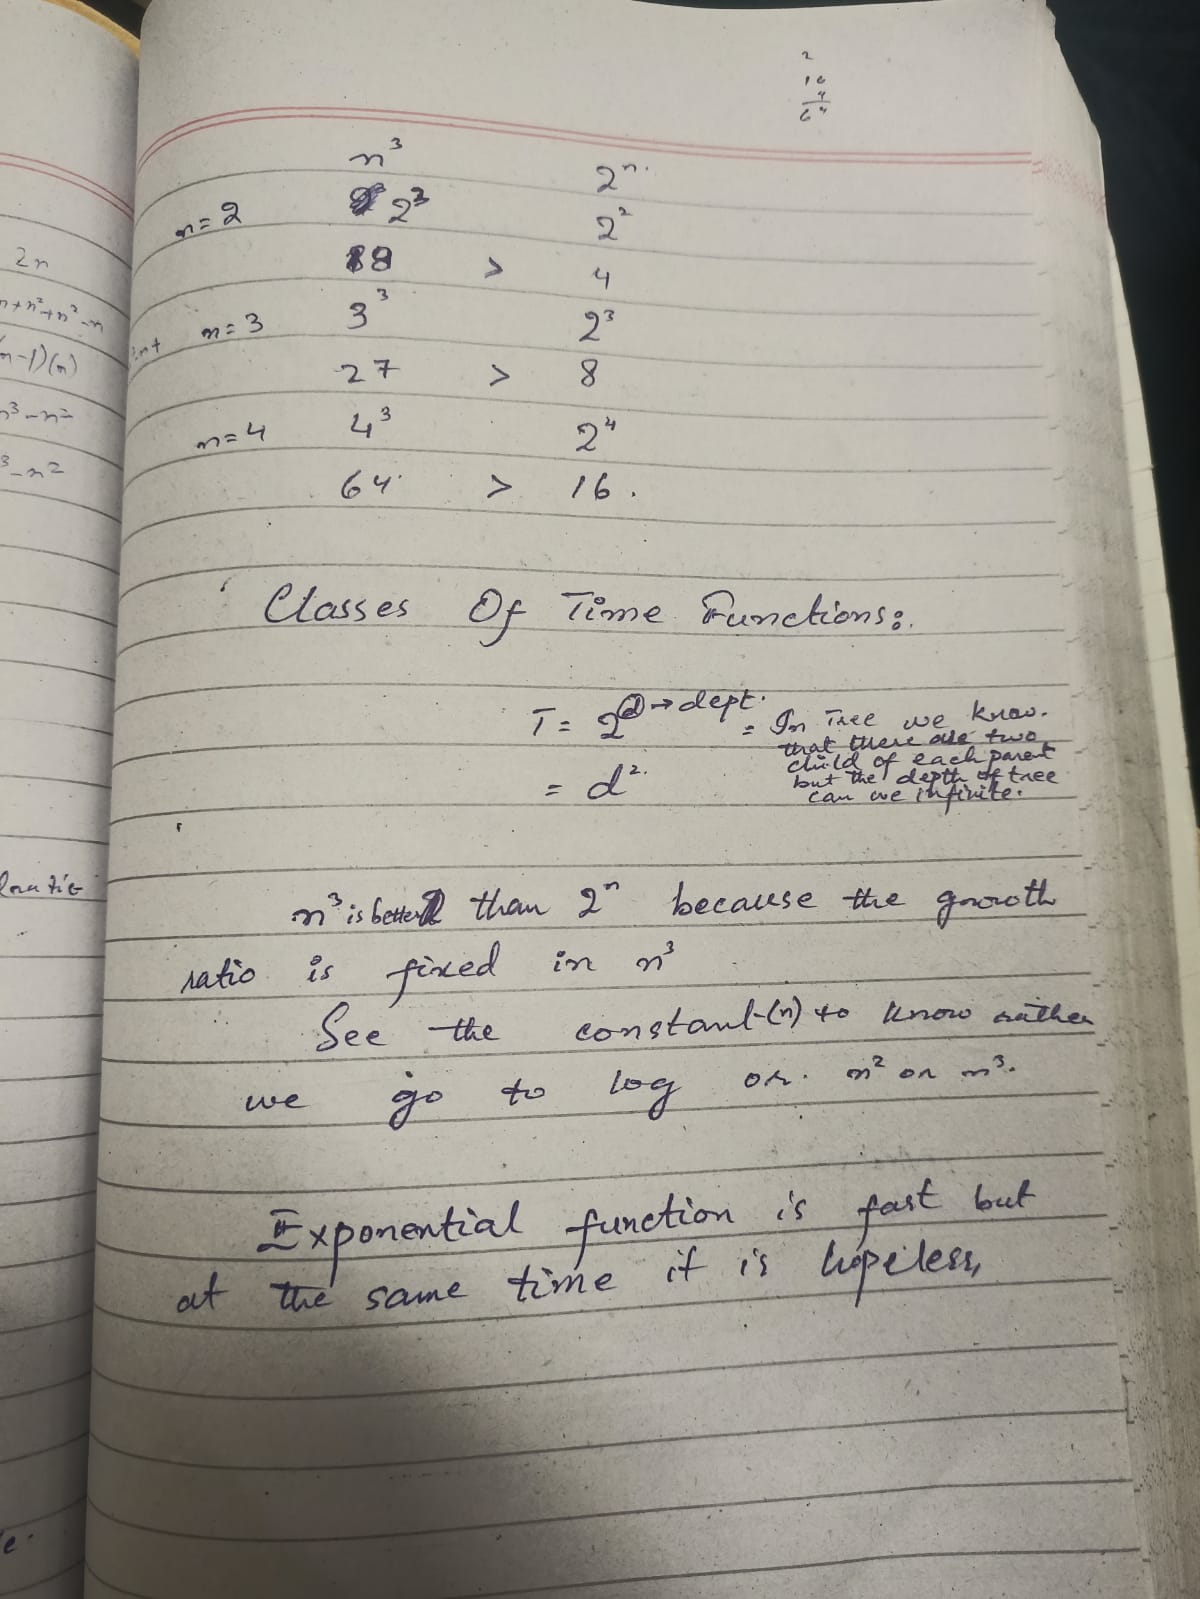 2
16
4
64
n³ 2ⁿ.
n=2 2³ 2²
8 > 4
n=3 3³ 2³
27 > 8
n=4 4³ 2⁴
64 > 16.
Classes Of Time Functions:.
T = 2^d → dept. = In Tree we know.
that there are two
child of each parent
but the depth of tree
can we infinite.
= d².
n³ is better than 2ⁿ because the growth
ratio is fixed in n³
See the constant (n) to know rather
we go to log or. n² or n³.
Exponential function is fast but
at the same time it is hopeless,
2n
n+n²+n³-n
(n-1)(n)
n³-n²
³-n²